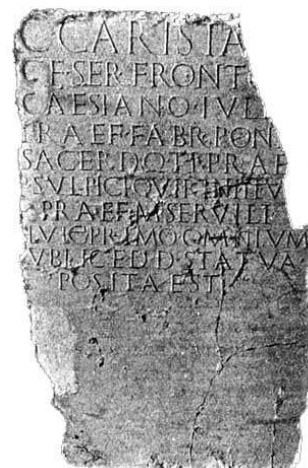 C·CARISTA
C·F·SER·FRONT
CAESIANO·IVL
PRAEF·FABR·PON
SACERDOTI·PRAE
P·SVLPICI·QVIRINI·II·V
PRAEF·M·SERVILI
HVIC·PRIMO·OMNIVM
PVBLICE·D·D·STATVA
POSITA·EST